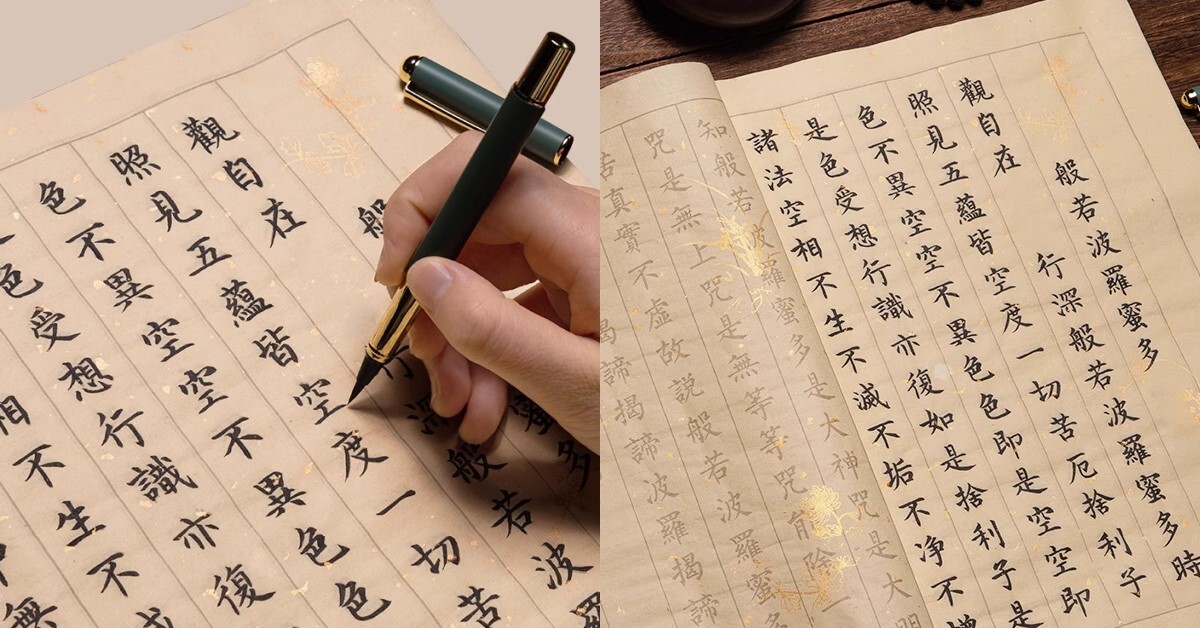 般蜜多
觀自在行深般若波
照見五蘊皆空度一切苦
色不異空空不異色色
色受想行識亦復
相不生不
無
般若波羅蜜多
觀自在行深般若波羅蜜多時
照見五蘊皆空度一切苦厄捨利子
色不異空空不異色色即是空空即
是色受想行識亦復如是捨利子是
諸法空相不生不滅不垢不净不增
知般若波羅蜜多是大神咒是大明
咒是無上咒是無等等咒能除一
苦真實不虛故説般若波羅蜜多
揭諦揭諦波羅揭諦